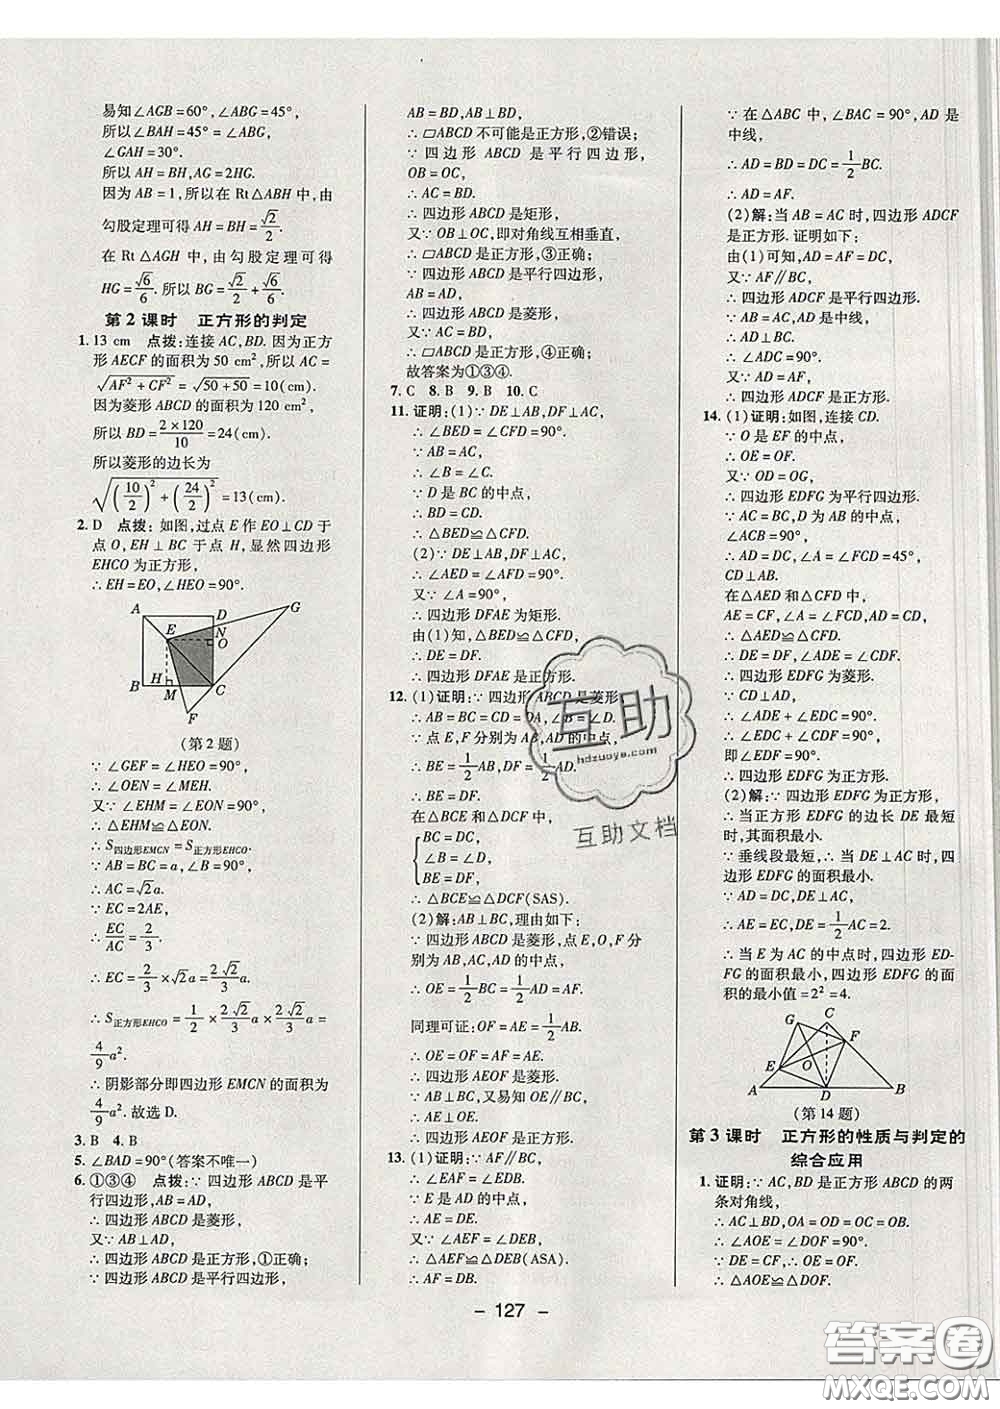 易知∠AGB=60°,∠ABG=45°,
所以∠BAH=45°=∠ABG,
∠GAH=30°.
所以AH=BH,AG=2HG.
因为AB=1,所以在Rt△ABH中,由
勾股定理可得AH=BH=√2/2.
在Rt△AGH中,由勾股定理可得
HG=√6/6.所以BG=√2/2+√6/6.
第2课时 正方形的判定
1.13 cm 点拨:连接AC,BD.因为正方
形AECF的面积为50 cm²,所以AC=
√(AF²+CF²)=√(50+50)=10(cm).
因为菱形ABCD的面积为120 cm²,
所以BD=(2×120)/10=24(cm).
所以菱形的边长为
√((10/2)²+(24/2)²)=13(cm).
2.D 点拨:如图,过点E作EO⊥CD于
点O,EH⊥BC于点H,显然四边形
EHCO为正方形,
∴EH=EO,∠HEO=90°.
A D G
E N O
B H M C
F
(第2题)
∵∠GEF=∠HEO=90°,
∴∠OEN=∠MEH.
又∵∠EHM=∠EON=90°,
∴△EHM≌△EON.
∴S四边形EMCN=S正方形EHCO.
∵AB=BC=a,∠B=90°,
∴AC=√2a.
∵EC=2AE,
∴EC/AC=2/3.
∴EC=2/3×√2a=2√2/3a.
∴S正方形EHCO=1/2×2√2/3a×2√2/3a=
4/9a².
∴阴影部分即四边形EMCN的面积为
4/9a².故选D.
3.B 4.B
5.∠BAD=90°(答案不唯一)
6.①③④ 点拨:∵四边形ABCD是平
行四边形,AB=AD,
∴四边形ABCD是菱形,
又∵AB⊥AD,
∴四边形ABCD是正方形,①正确;
∵四边形ABCD是平行四边形,
AB=BD,AB⊥BD,
∴▱ABCD不可能是正方形,②错误;
∵四边形ABCD是平行四边形,
OB=OC,
∴AC=BD.
∴四边形ABCD是矩形,
又∵OB⊥OC,即对角线互相垂直,
∴▱ABCD是正方形,③正确;
∵四边形ABCD是平行四边形,
AB=AD,
∴四边形ABCD是菱形,
又∵AC=BD,
∴▱ABCD是正方形,④正确;
故答案为①③④.
7.C 8.B 9.B 10.C
11.证明:(1)∵DE⊥AB,DF⊥AC,
∴∠BED=∠CFD=90°.
∵AB=AC,
∴∠B=∠C.
∵D是BC的中点,
∴BD=CD.
∴△BED≌△CFD.
(2)∵DE⊥AB,DF⊥AC,
∴∠AED=∠AFD=90°.
又∵∠A=90°,
∴四边形DFAE为矩形.
由(1)知,△BED≌△CFD,
∴DE=DF.
∴四边形DFAE是正方形.
12.(1)证明:∵四边形ABCD是菱形,
∴AB=BC=CD=DA,∠B=∠D.
∵点E,F分别为AB,AD的中点,
∴BE=1/2AB,DF=1/2AD.
∴BE=DF.
在△BCE和△DCF中,
BC=DC,
∠B=∠D,
BE=DF,
∴△BCE≌△DCF(SAS).
(2)解:AB⊥BC,理由如下:
∵四边形ABCD是菱形,点E,O,F分
别为AB,AC,AD的中点,
∴OE=1/2BC=1/2AD=AF.
同理可证:OF=AE=1/2AB.
∴OE=OF=AE=AF.
∴四边形AEOF是菱形.
∵AB⊥BC,又易知OE∥BC,
∴AE⊥OE.
∴四边形AEOF是正方形.
13.(1)证明:∵AF∥BC,
∴∠EAF=∠EDB.
∵E是AD的中点,
∴AE=DE.
∵∠AEF=∠DEB,
∴△AEF≌△DEB(ASA).
∴AF=DB.
∵在△ABC中,∠BAC=90°,AD是
中线,
∴AD=BD=DC=1/2BC.
∴AD=AF.
(2)解:当AB=AC时,四边形ADCF
是正方形.证明如下:
由(1)可知,AF=BD=DC,
又∵AF∥BC,
∴四边形ADCF是平行四边形.
又∵AB=AC,AD是中线,
∴AD⊥BC.
∴∠ADC=90°.
又∵AD=AF,
∴四边形ADCF是正方形.
14.(1)证明:如图,连接CD.
∵O是EF的中点,
∴OE=OF.
又∵OD=OG,
∴四边形EDFG是平行四边形.
∵AC=BC,D为AB的中点,
∠ACB=90°,
∴AD=DC,∠A=∠FCD=45°,
CD⊥AB.
在△AED和△CFD中,
AE=CF,∠A=∠FCD,AD=CD,
∴△AED≌△CFD.
∴DE=DF,∠ADE=∠CDF.
∴四边形EDFG为菱形.
∵CD⊥AD,
∴∠ADE+∠EDC=90°.
∴∠EDC+∠CDF=90°,
即∠EDF=90°.
∴四边形EDFG为正方形.
(2)解:∵四边形EDFG为正方形,
∴当正方形EDFG的边长DE最短
时,其面积最小.
∵垂线段最短,∴当DE⊥AC时,四
边形EDFG的面积最小.
∵AD=DC,DE⊥AC,
∴AE=EC,DE=1/2AC=2.
∴当E为AC的中点时,四边形ED-
FG的面积最小,四边形EDFG的面
积的最小值=2²=4.
G C F
E O
A D B
(第14题)
第3课时 正方形的性质与判定的
综合应用
1.证明:∵AC,BD是正方形ABCD的两
条对角线,
∴AC⊥BD,OA=OD=OC=OB.
∴∠AOE=∠DOF=90°.
∵DE=CF,∴OE=OF.
∴△AOE≌△DOF.
- 127 -
互助
hdzuoye.com
互助文档
答案圈
MXQE.COM